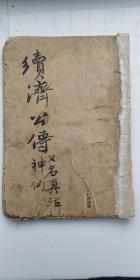 續濟公傳神仙
又名真活